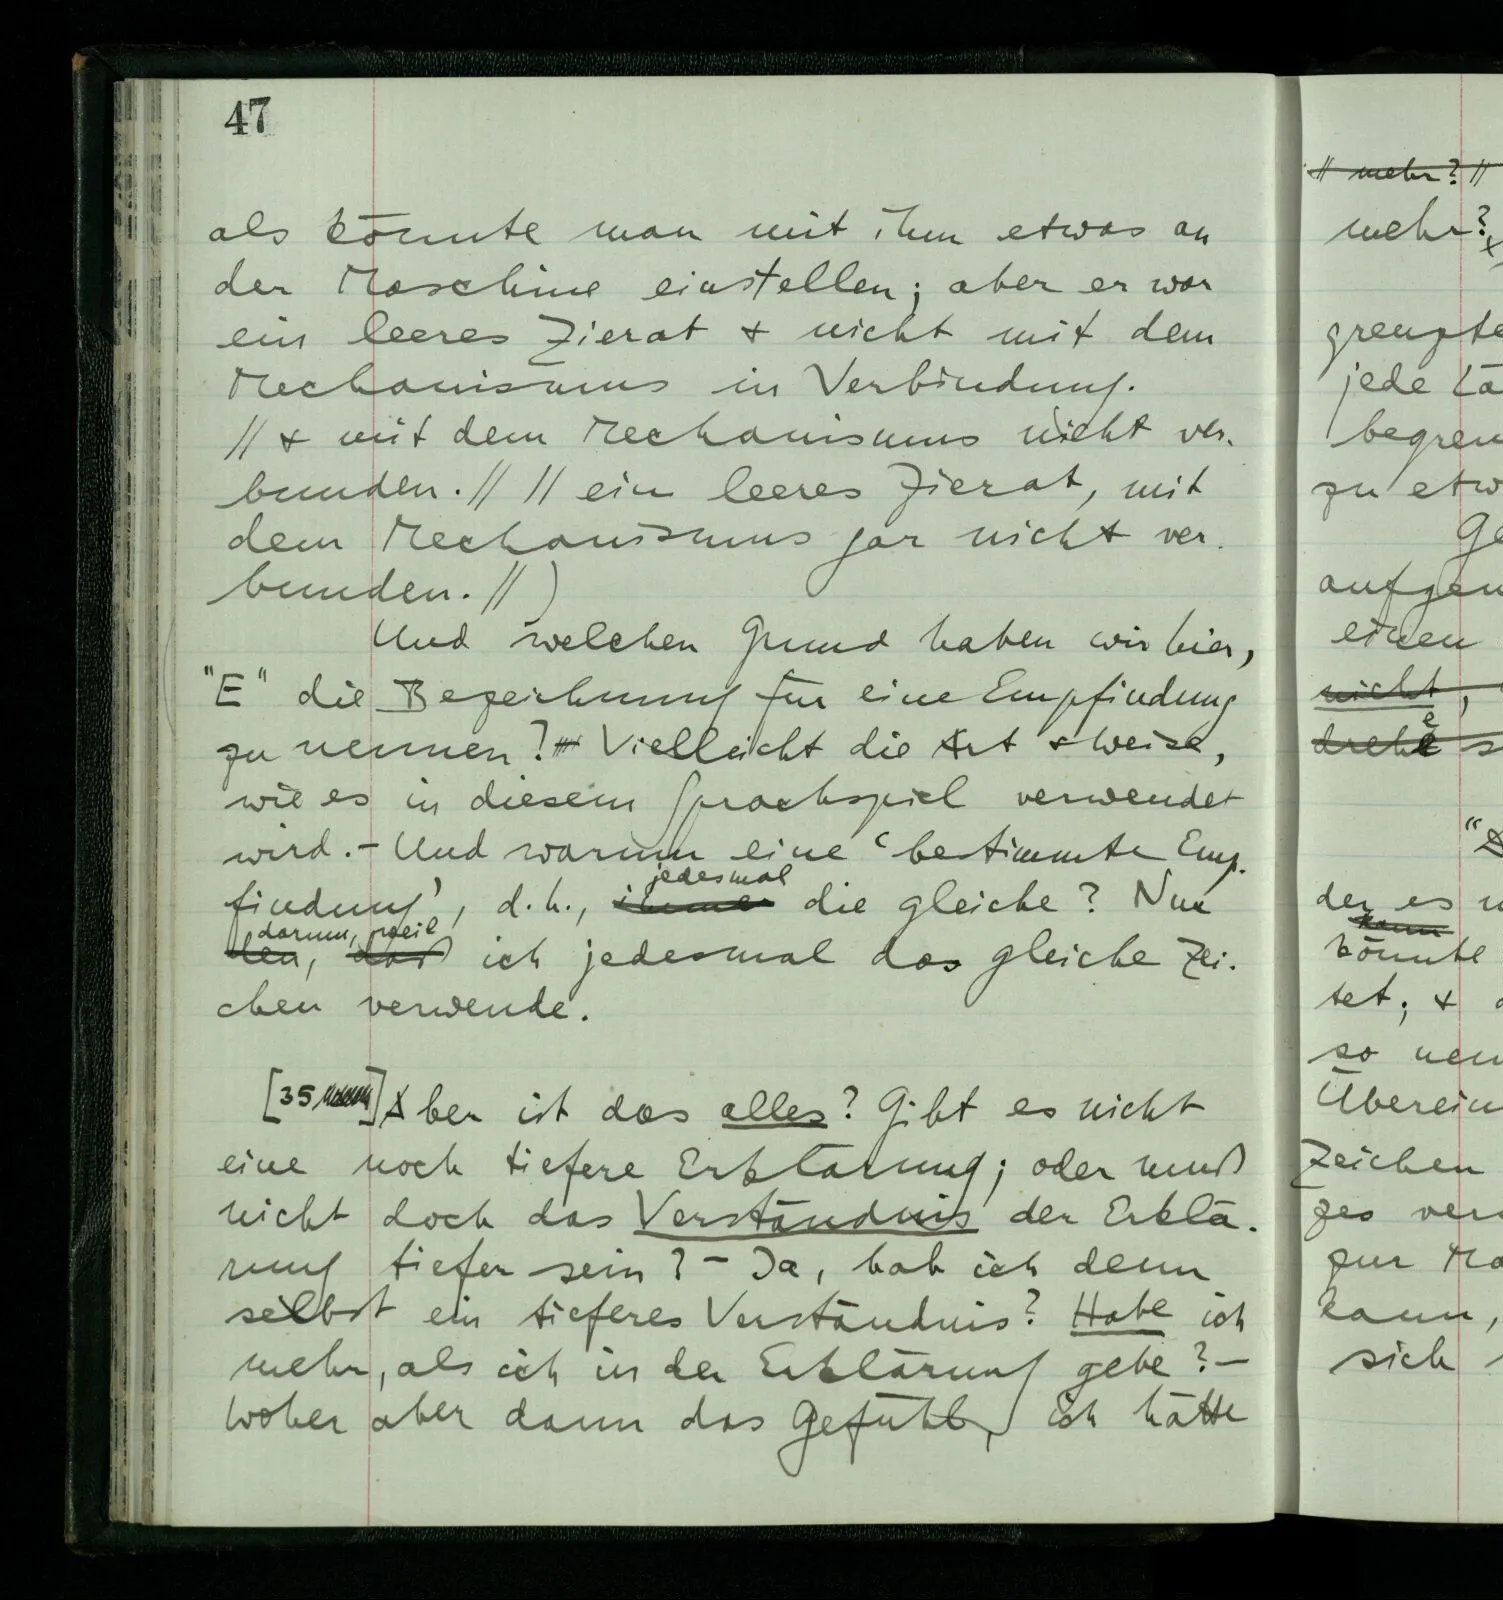 47
als könnte man mit ihm etwas an
der Maschine einstellen; aber er war
ein leeres Zierat & nicht mit dem
Mechanismus in Verbindung.
// & mit dem Mechanismus nicht ver-
bunden. // // ein leeres Zierat, mit
dem Mechanismus gar nicht ver-
bunden. // )
Und welchen Grund haben wir hier,
"E" die Bezeichnung für eine Empfindung
zu nennen? Vielleicht die Art & Weise,
wie es in diesem Sprachspiel verwendet
wird. – Und warum eine 'bestimmte Emp-
jedesmal
findung', d.h., immer die gleiche? Nun
darum, weil
den, daß ich jedesmal das gleiche Zei-
chen verwende.
[35] Aber ist das alles? Gibt es nicht
eine noch tiefere Erklärung; oder muß
nicht doch das Verständnis der Erklä-
rung tiefer sein? – Ja, hab ich denn
selbst ein tieferes Verständnis? Habe ich
mehr, als ich in der Erklärung gebe? –
Woher aber dann das Gefühl, ich hätte
// mehr? //
mehr?
grenzte
jede Lä
begren
zu etw
Ge
aufgen
einen
nicht,
drehe s
"A
der es
kann
könnte
tet; &
so nen
Überein
Zeichen
ges ver
zur Ma
kann,
sich